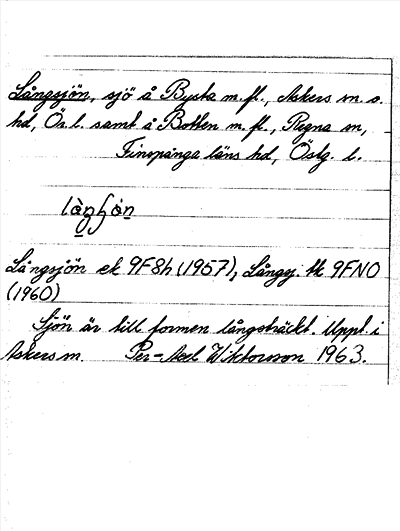 Långsjön, sjö å Bysta m. fl., Askers sn o.
hd, Ör. l. samt å Botten m. fl., Regna sn,
Finspånga läns hd, Östg. l.
Långsjön ek 9F8h (1957), Långsj. tk 9FNO
(1960)
Sjön är till formen långsträckt. Uppt. i
Askers sn. Per-Axel Wiktorsson 1963.